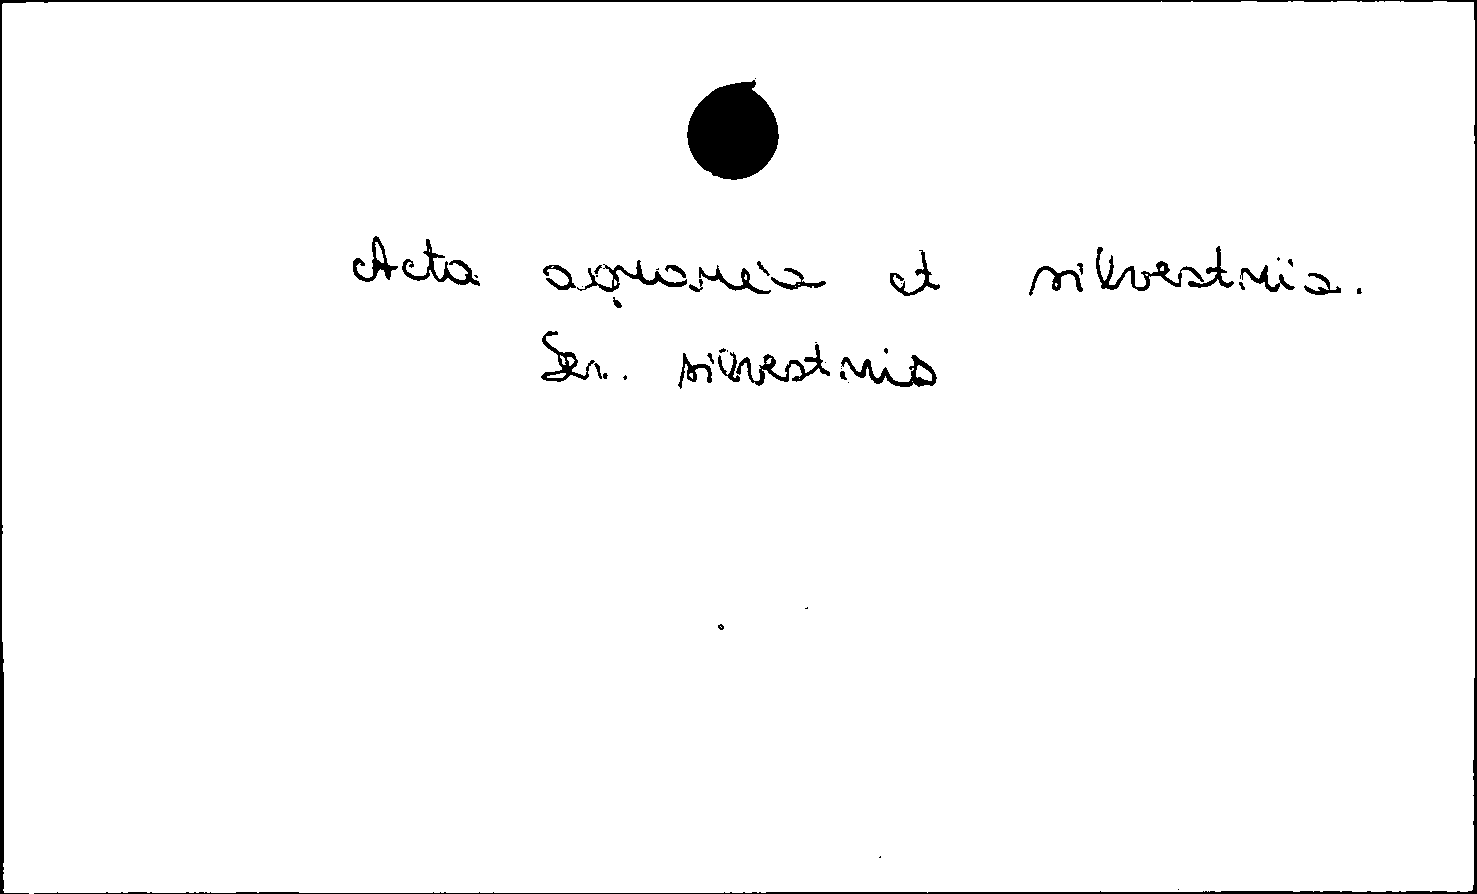 Acta aquaria et silvestria.
Ser. silvestris